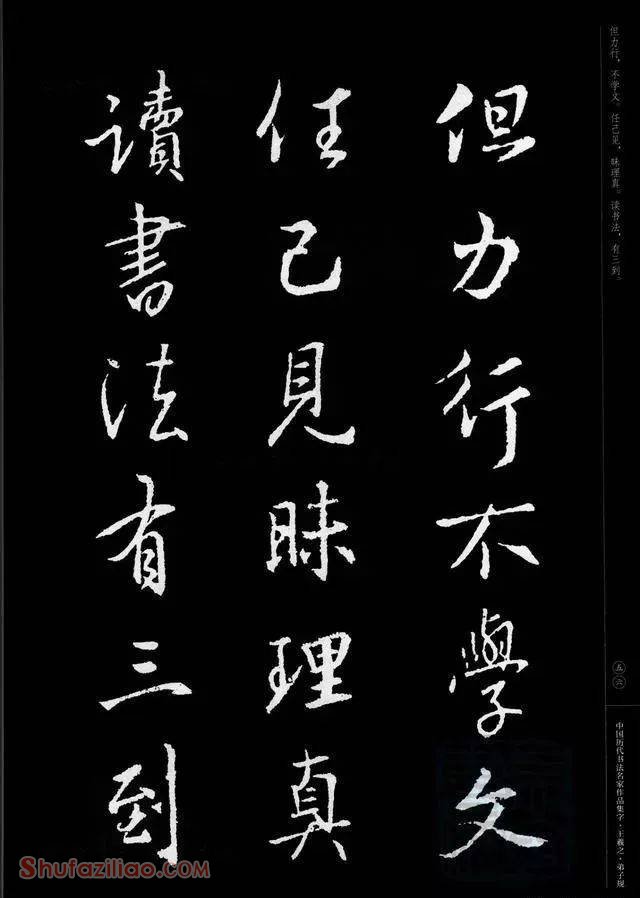 但力行，不学文。任己见，昧理真。读书法，有三到。
但力行不學文
任己見昧理真
讀書法有三到
五六
中国历代书法名家作品集字·王羲之·弟子规
Shufaziliao.com